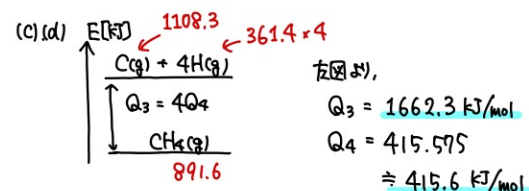 (c)(d) E[kJ]
1108.3
361.4×4
C(g) + 4H(g)
Q3 = 4Q4
CH4(g)
891.6
左図より,
Q3 = 1662.3 kJ/mol
Q4 = 415.575
≒ 415.6 kJ/mol